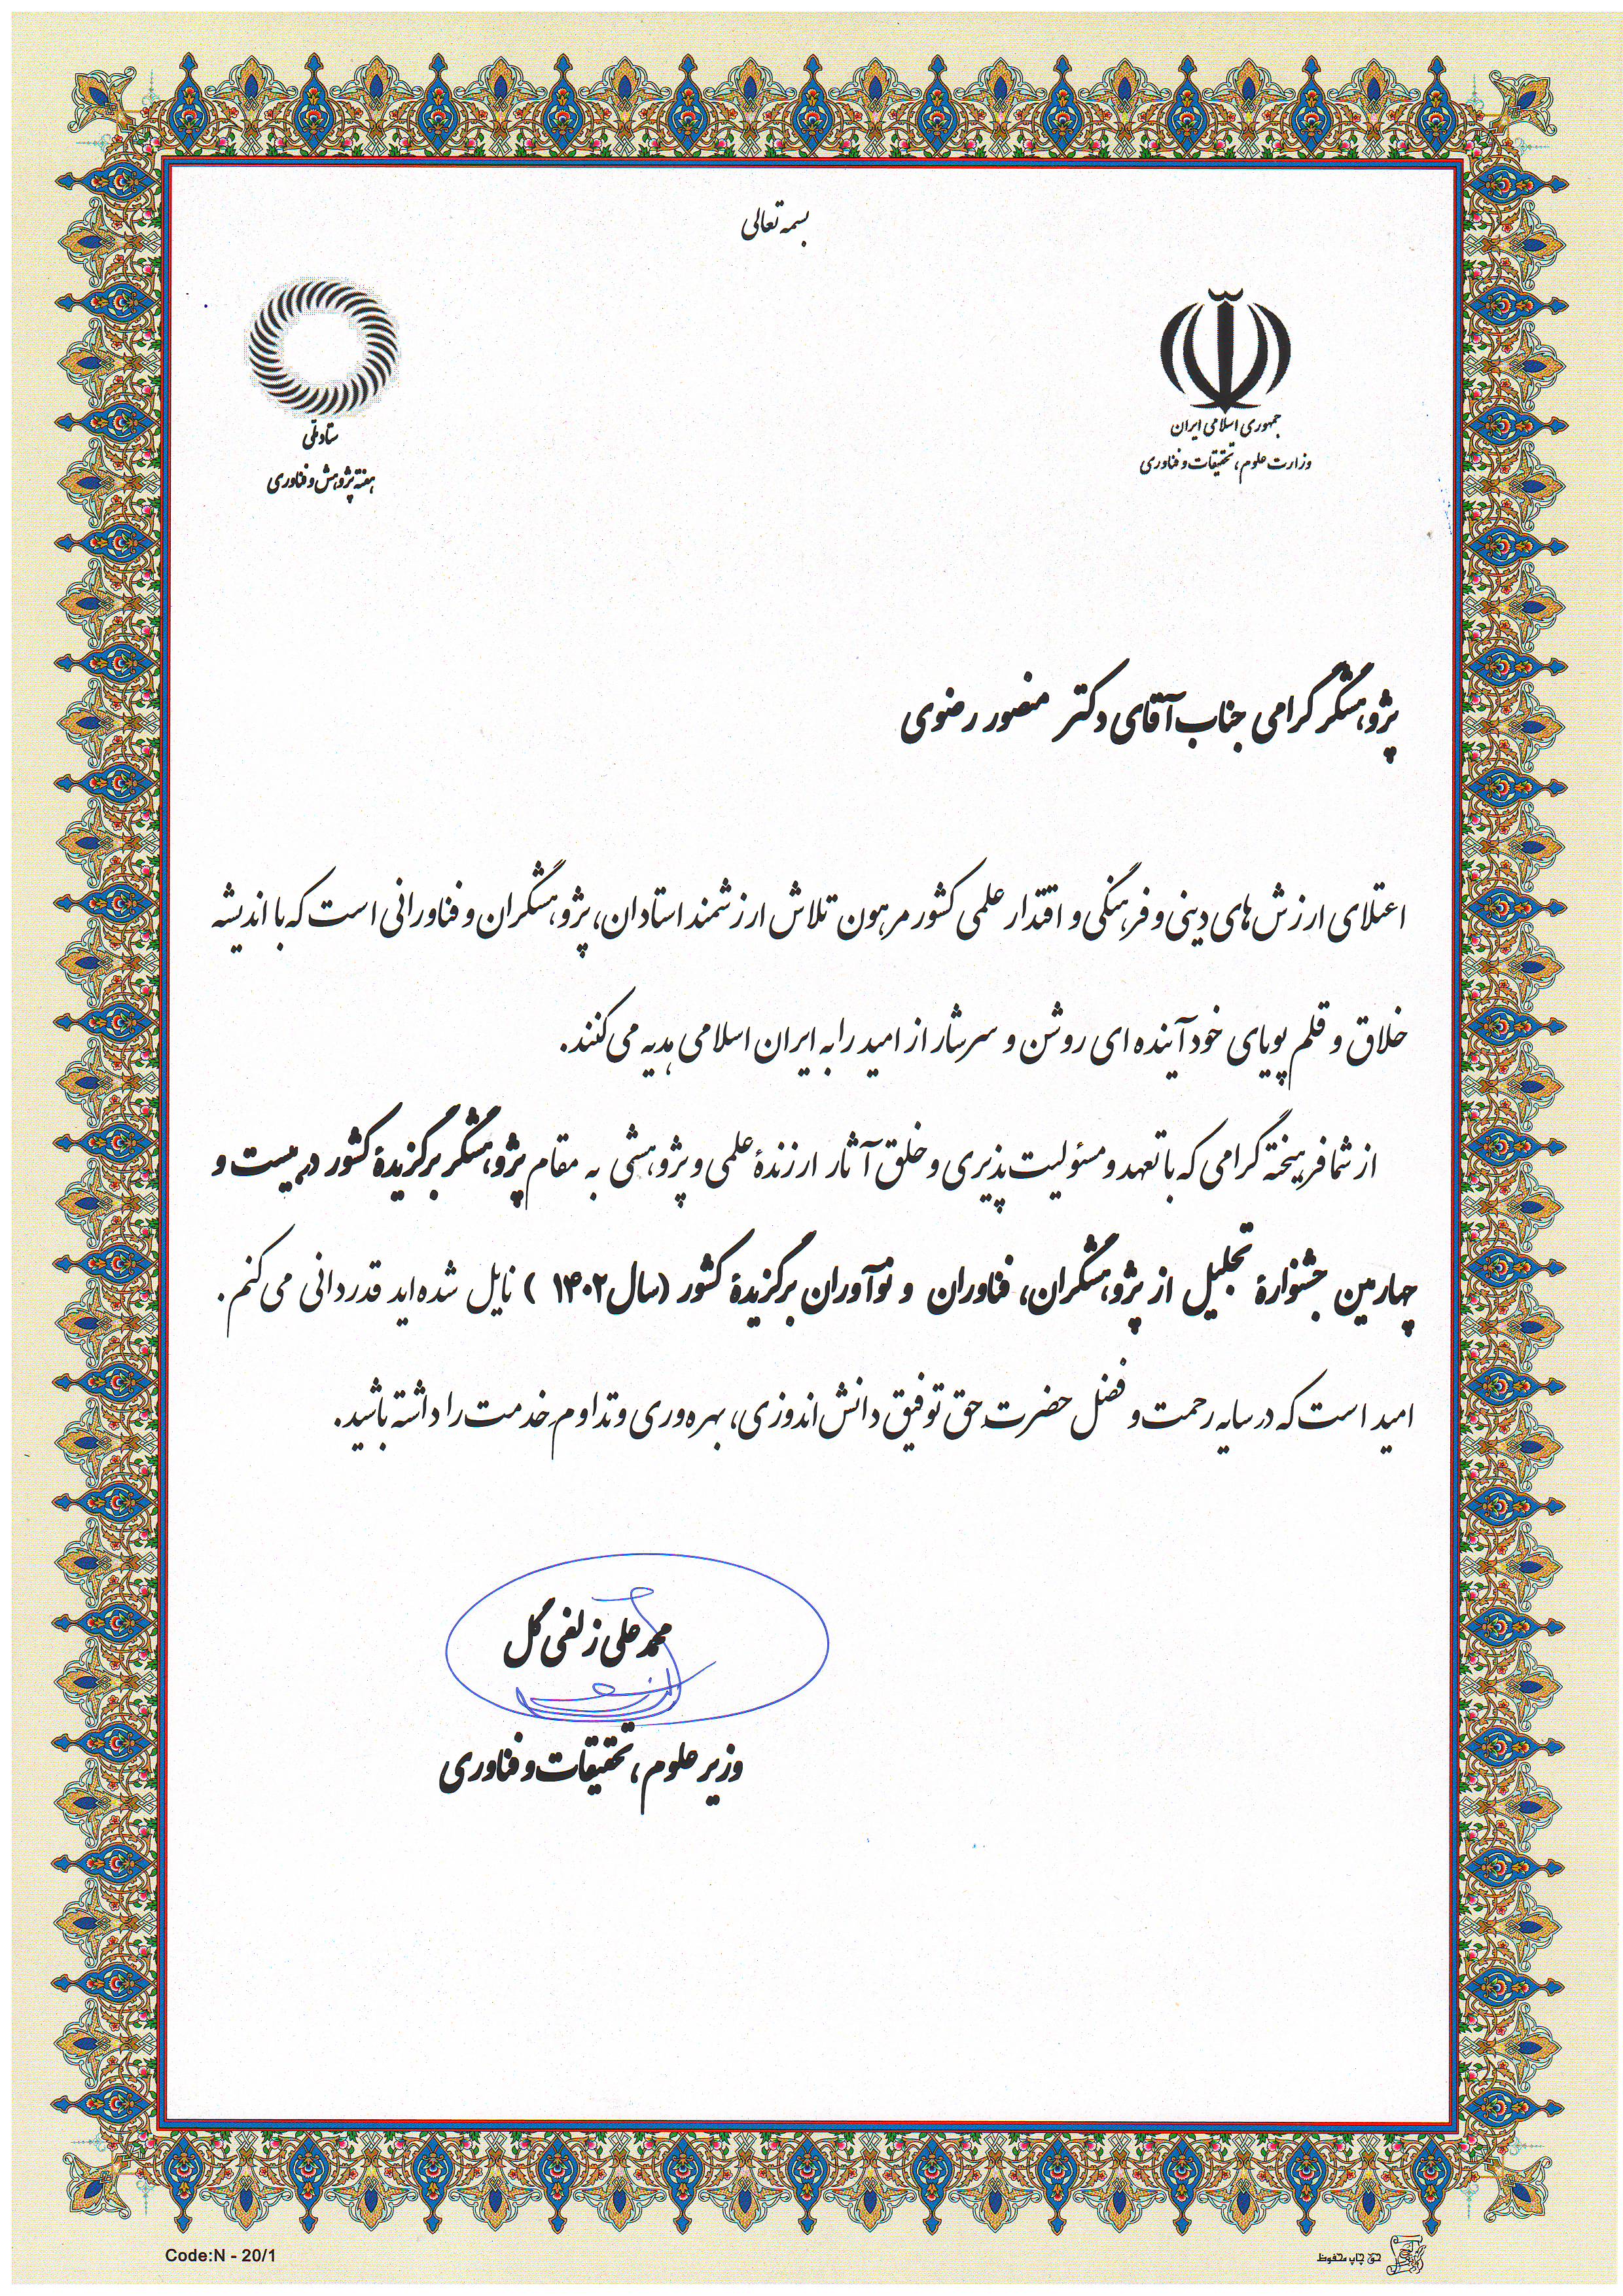 بسمه تعالی
جمهوری اسلامی ایران
وزارت علوم، تحقیقات و فناوری
ستاد ملی
هفته پژوهش و فناوری
پژوهشگر گرامی جناب آقای دکتر منصور رضوی
اعتلای ارزش های دینی و فرهنگی و اقتدار علمی کشور مرهون تلاش ارزشمند استادان، پژوهشگران و فناورانی است که با اندیشه
خلاق و قلم پویای خود آینده ای روشن و سرشار از امید را به ایران اسلامی هدیه می کنند.
از شما فرهیخته گرامی که با تعهد و مسئولیت پذیری و خلق آثار ارزندهٔ علمی و پژوهشی به مقام پژوهشگر برگزیدهٔ کشور در بیست و
چهارمین جشنوارهٔ تجلیل از پژوهشگران، فناوران و نوآوران برگزیدهٔ کشور (سال ۱۴۰۲ ) نایل شده اید قدردانی می کنم.
امید است که در سایه رحمت و فضل حضرت حق توفیق دانش اندوزی، بهره وری و تداوم خدمت را داشته باشید.
محمد علی زلفی گل
وزیر علوم، تحقیقات و فناوری
Code:N - 20/1
حق چاپ محفوظ